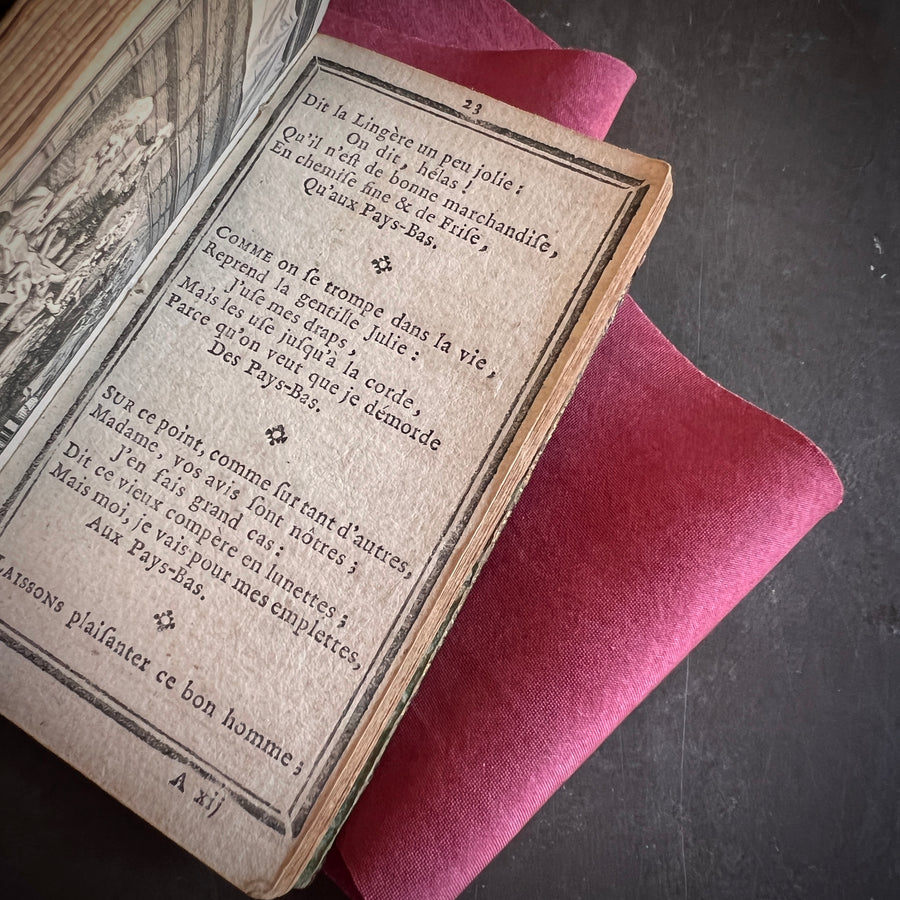 23
Dit la Lingère un peu jolie :
On dit, hélas !
Qu'il n'eſt de bonne marchandiſe,
En chemiſe fine & de Friſe,
Qu'aux Pays-Bas.
COMME on ſe trompe dans la vie,
Reprend la gentille Julie :
J'uſe mes draps,
Mais les uſe juſqu'à la corde,
Parce qu'on veut que je démorde
Des Pays-Bas.
SUR ce point, comme ſur tant d'autres,
Madame, vos avis ſont nôtres ;
J'en fais grand cas :
Dit ce vieux compère en lunettes ;
Mais moi, je vais pour mes emplettes,
Aux Pays-Bas.
LAISSONS plaiſanter ce bon homme ;
A xij